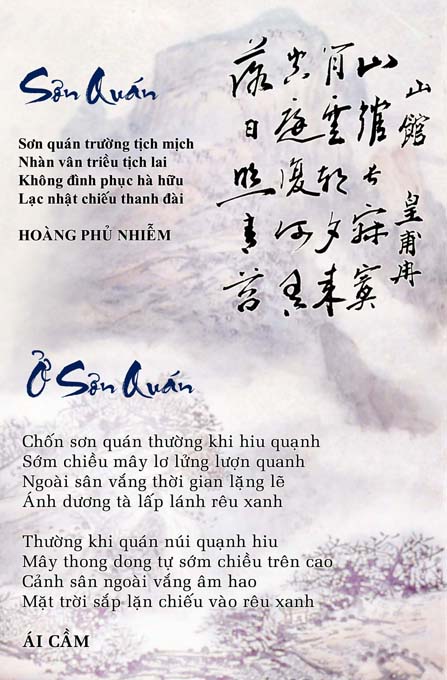 Sơn Quán
Sơn quán trường tịch mịch
Nhàn vân triều tịch lai
Không đình phục hà hữu
Lạc nhật chiếu thanh đài
HOÀNG PHỦ NHIỄM
山館
皇甫冉
山館長寂寞
閒雲朝夕來
空庭復何有
落日照青苔
Ở Sơn Quán
Chốn sơn quán thường khi hiu quạnh
Sớm chiều mây lơ lửng lượn quanh
Ngoài sân vắng thời gian lặng lẽ
Ánh dương tà lấp lánh rêu xanh
Thường khi quán núi quạnh hiu
Mây thong dong tự sớm chiều trên cao
Cảnh sân ngoài vắng âm hao
Mặt trời sắp lặn chiếu vào rêu xanh
ÁI CẦM